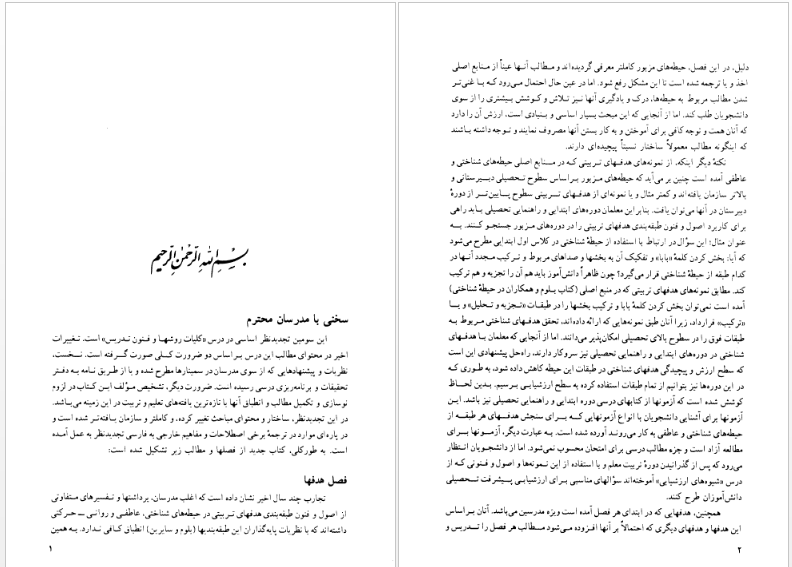 بسم الله الرحمن الرحیم
سخنی با مدرسان محترم
این سومین تجدیدنظر اساسی در درس «کلیات روشها و فنون تدریس» است. تغییرات
اخیر در محتوای مطالب این درس براساس دو ضرورت کلی صورت گرفته است. نخست،
نظریات و پیشنهادهایی که از سوی مدرسان در سمینارها مطرح شده و یا از طریق نامه به دفتر
تحقیقات و برنامه‌ریزی درسی رسیده است. ضرورت دیگر، تشخیص مؤلف این کتاب در لزوم
نوسازی و تکمیل مطالب و انطباق آنها با تازه‌ترین یافته‌های تعلیم و تربیت در این زمینه می‌باشد.
در این تجدیدنظر، ساختار و محتوای مباحث تغییر کرده، و کاملتر و سازمان یافته‌تر شده است و
در پاره‌ای موارد در ترجمهٔ برخی اصطلاحات و مفاهیم خارجی به فارسی تجدیدنظر به عمل آمده
است. به طورکلی، کتاب جدید از فصلها و مطالب زیر تشکیل شده است:
فصل هدفها
تجارب چند سال اخیر نشان داده است که اغلب مدرسان، برداشتها و تفسیرهای متفاوتی
از اصول و فنون طبقه‌بندی هدفهای تربیتی در حیطه‌های شناختی، عاطفی و روانی ــ حرکتی
داشته‌اند که با نظریات پایه‌گذاران این طبقه‌بندیها (بلوم و سایرین) انطباق کافی ندارد. به همین
۱
دلیل، در این فصل، حیطه‌های مزبور کاملتر معرفی گردیده‌اند و مطالب آنها عیناً از منابع اصلی
اخذ و یا ترجمه شده است تا این مشکل رفع شود. اما در عین حال احتمال می‌رود که با غنی‌تر
شدن مطالب مربوط به حیطه‌ها، درک و یادگیری آنها نیز تلاش و کوشش بیشتری را از سوی
دانشجویان طلب کند. اما از آنجایی که این مبحث بسیار اساسی و بنیادی است، ارزش آن را دارد
که آنان همت و توجه کافی برای آموختن و به کار بستن آنها مصروف نمایند و توجه داشته باشند
که اینگونه مطالب معمولاً ساختار نسبتاً پیچیده‌ای دارند.
نکتهٔ دیگر اینکه، از نمونه‌های هدفهای تربیتی که در منابع اصلی حیطه‌های شناختی و
عاطفی آمده است چنین بر می‌آید که حیطه‌های مزبور براساس سطوح تحصیلی دبیرستانی و
بالاتر سازمان یافته‌اند و کمتر مثال و یا نمونه‌ای از هدفهای تربیتی سطوح پایین‌تر از دورهٔ
دبیرستان در آنها می‌توان یافت. بنابراین معلمان دوره‌های ابتدایی و راهنمایی تحصیلی باید راهی
برای کاربرد اصول و فنون طبقه‌بندی هدفهای تربیتی را در دوره‌های مزبور جستجو کنند. به
عنوان مثال؛ این سؤال در ارتباط با استفاده از حیطهٔ شناختی در کلاس اول ابتدایی مطرح می‌شود
که آیا، بخش کردن کلمهٔ «بابا» و تفکیک آن به بخشها و صداهای مربوط و ترکیب مجدد آنها در
کدام طبقه از حیطهٔ شناختی قرار می‌گیرد؟ چون ظاهراً دانش‌آموز باید هم آن را تجزیه و هم ترکیب
کند. مطابق نمونه‌های هدفهای تربیتی که در منبع اصلی (کتاب بلوم و همکاران در حیطهٔ شناختی)
آمده است نمی‌توان بخش کردن کلمهٔ بابا و ترکیب بخشها را در طبقات «تجزیه و تحلیل» و یا
«ترکیب» قرارداد، زیرا آنان طبق نمونه‌هایی که ارائه داده‌اند، تحقق هدفهای شناختی مربوط به
طبقات فوق را در سطوح بالای تحصیلی امکان‌پذیر می‌دانند. اما از آنجا که معلمان با هدفهای
شناختی در دوره‌های ابتدایی و راهنمایی تحصیلی نیز سروکار دارند، راه‌حل پیشنهادی این است
که سطح ارزش و پیچیدگی هدفهای شناختی در طبقات این حیطه کاهش داده شود، به طوری که
در این دوره‌ها نیز بتوانیم از تمام طبقات استفاده کرده به سطح ارزشیابی برسیم. بدین لحاظ
کوشش شده است که آزمونها از کتابهای درسی دوره ابتدایی و راهنمایی تحصیلی نیز باشد. این
آزمونها برای آشنایی دانشجویان با انواع آزمونهایی که برای سنجش هدفهای هر طبقه از
حیطه‌های شناختی و عاطفی به کار می‌روند آورده شده است. به عبارت دیگر، آزمونها برای
مطالعه آزاد است و جزء مطالب درسی برای امتحان محسوب نمی‌شود. اما از دانشجویان انتظار
می‌رود که پس از گذرانیدن دورهٔ تربیت معلم و با استفاده از این نمونه‌ها و اصول و فنونی که از
درس «شیوه‌های ارزشیابی» آموخته‌اند سؤالهای مناسبی برای ارزشیابی پیشرفت تحصیلی
دانش‌آموزان طرح کنند.
همچنین، هدفهایی که در ابتدای هر فصل آمده است ویژه مدرسین می‌باشد. آنان براساس
این هدفها و هدفهای دیگری که احتمالاً بر آنها افزوده می‌شود مطالب هر فصل را تدریس و
۲